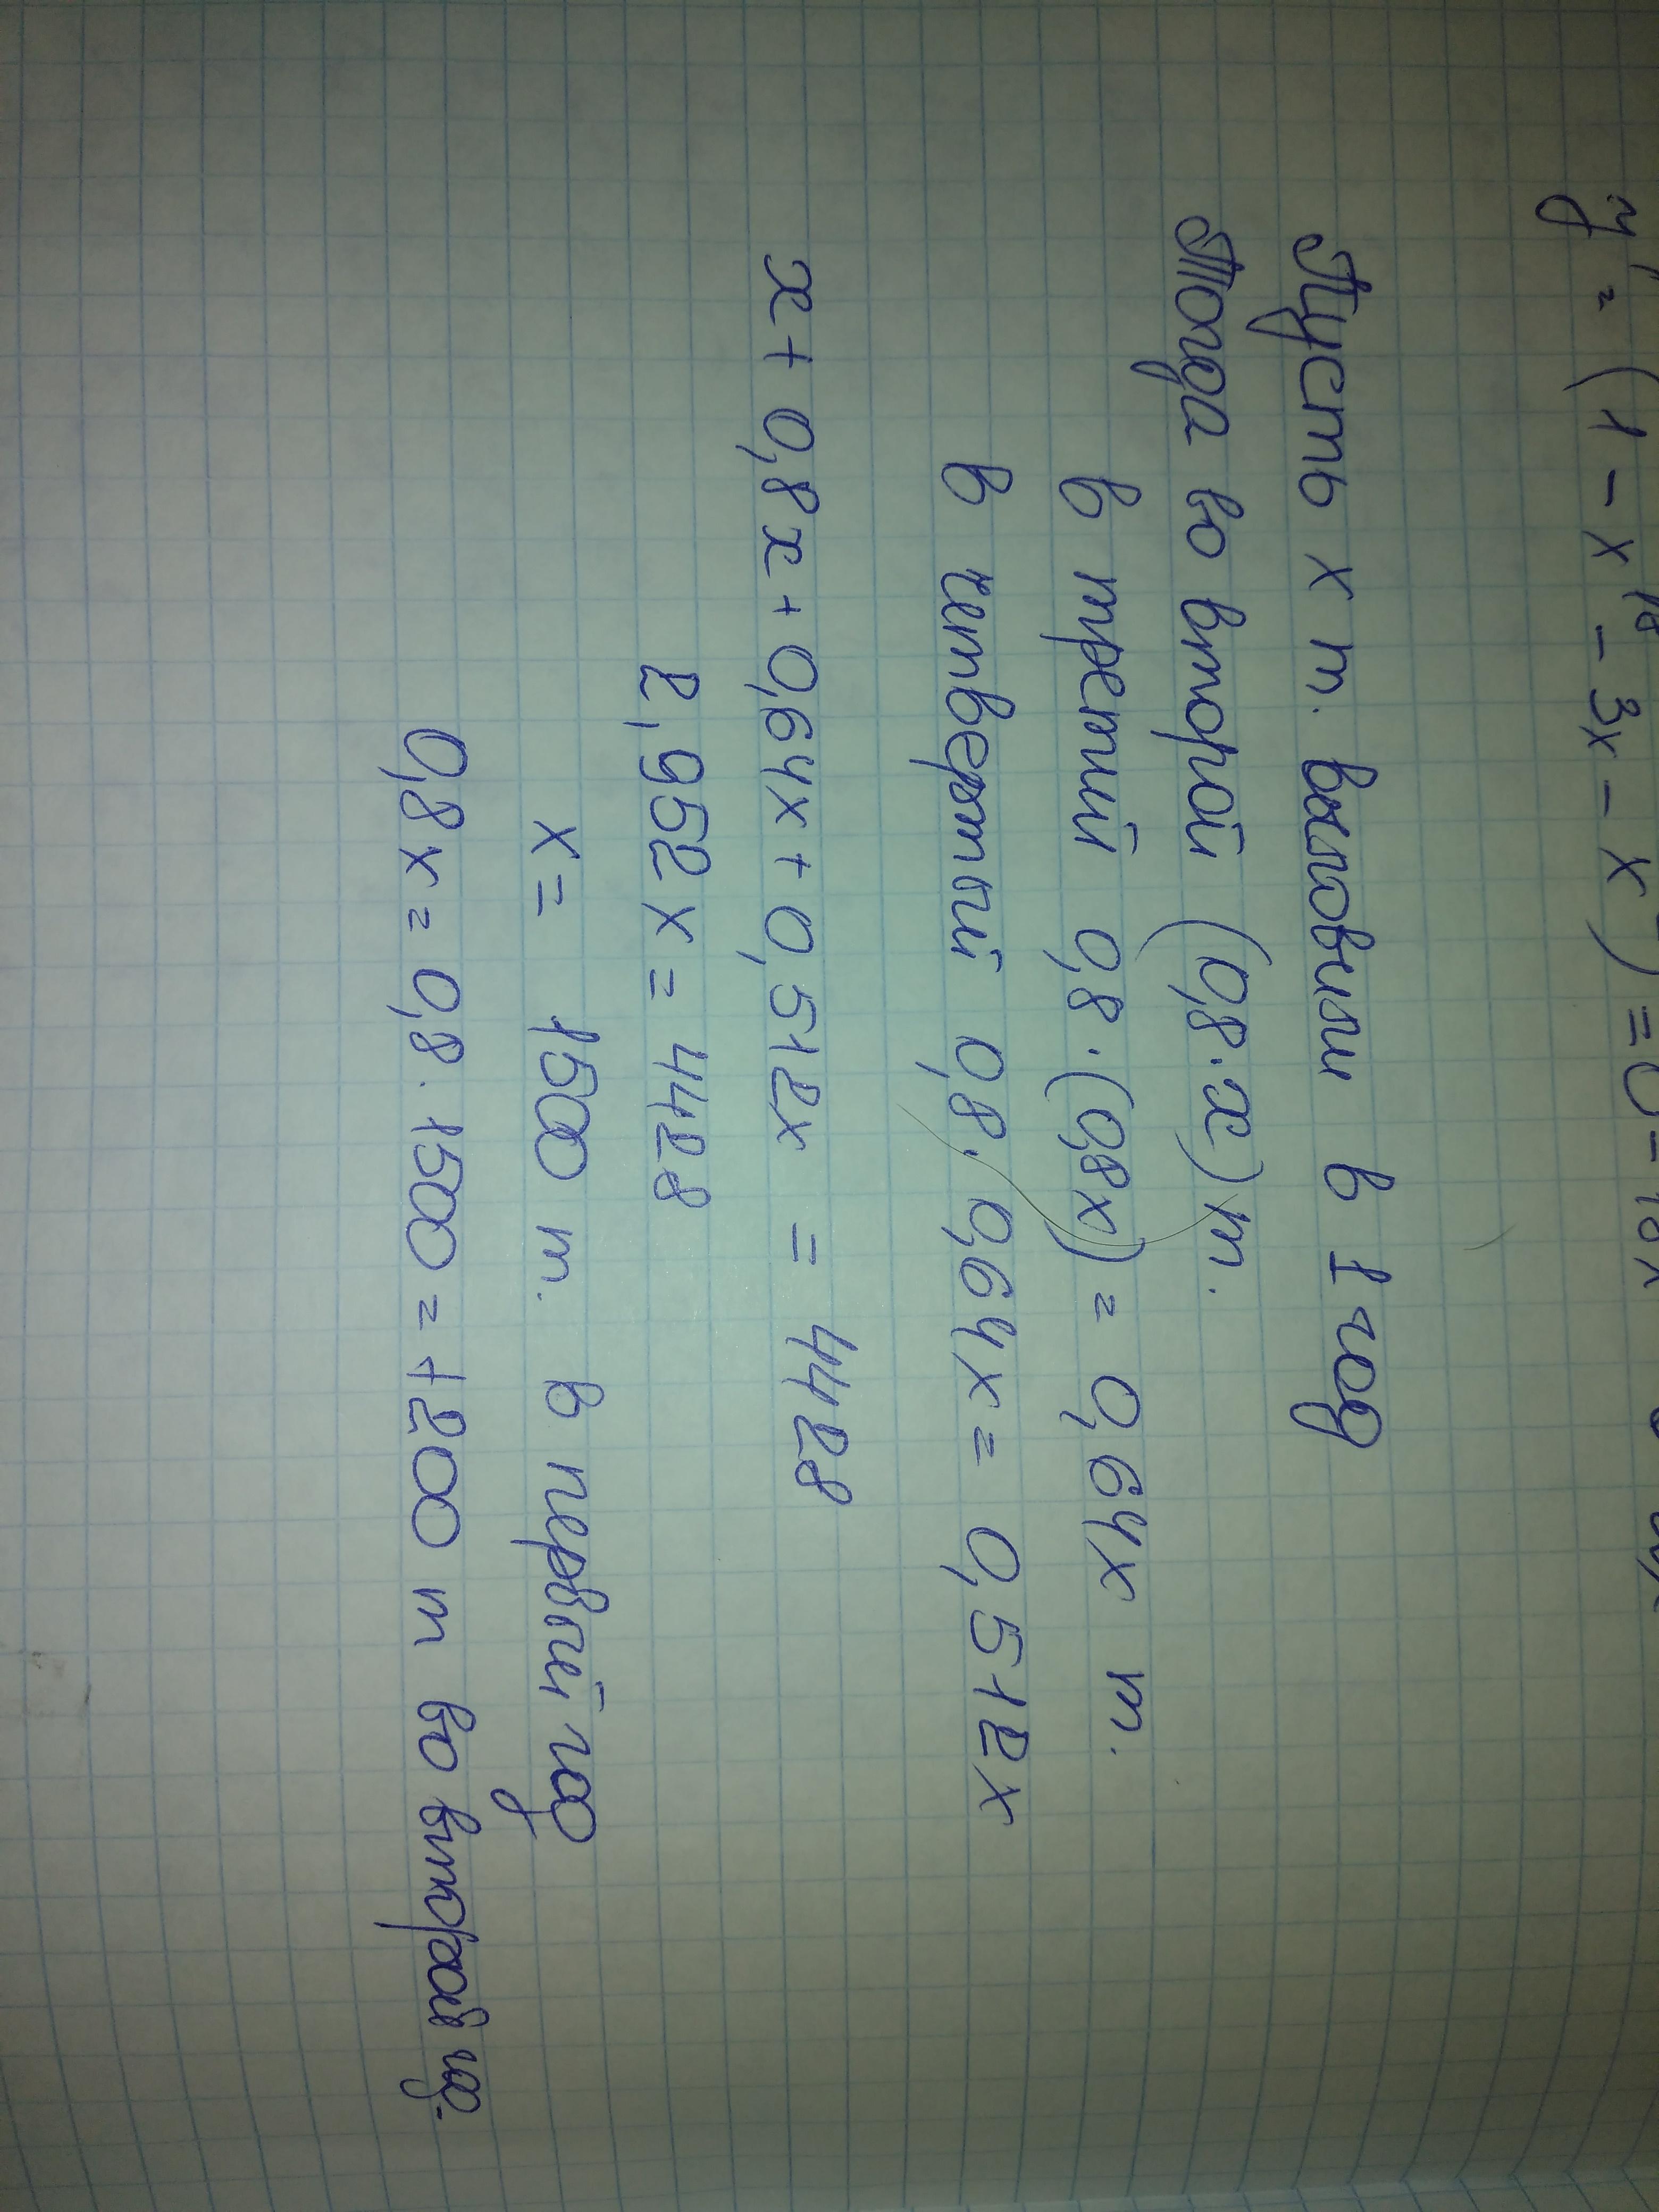 y' = (1 - x¹⁸ - 3x - x
Пусть x т. выловили в 1 год
Тогда во второй (0,8·x) т.
в третий 0,8·(0,8x) = 0,64x т.
в четвертый 0,8·0,64x = 0,512x
x + 0,8x + 0,64x + 0,512x = 4428
2,952x = 4428
x = 1500 т. в первый год
0,8x = 0,8·1500 = 1200 т во второй год.